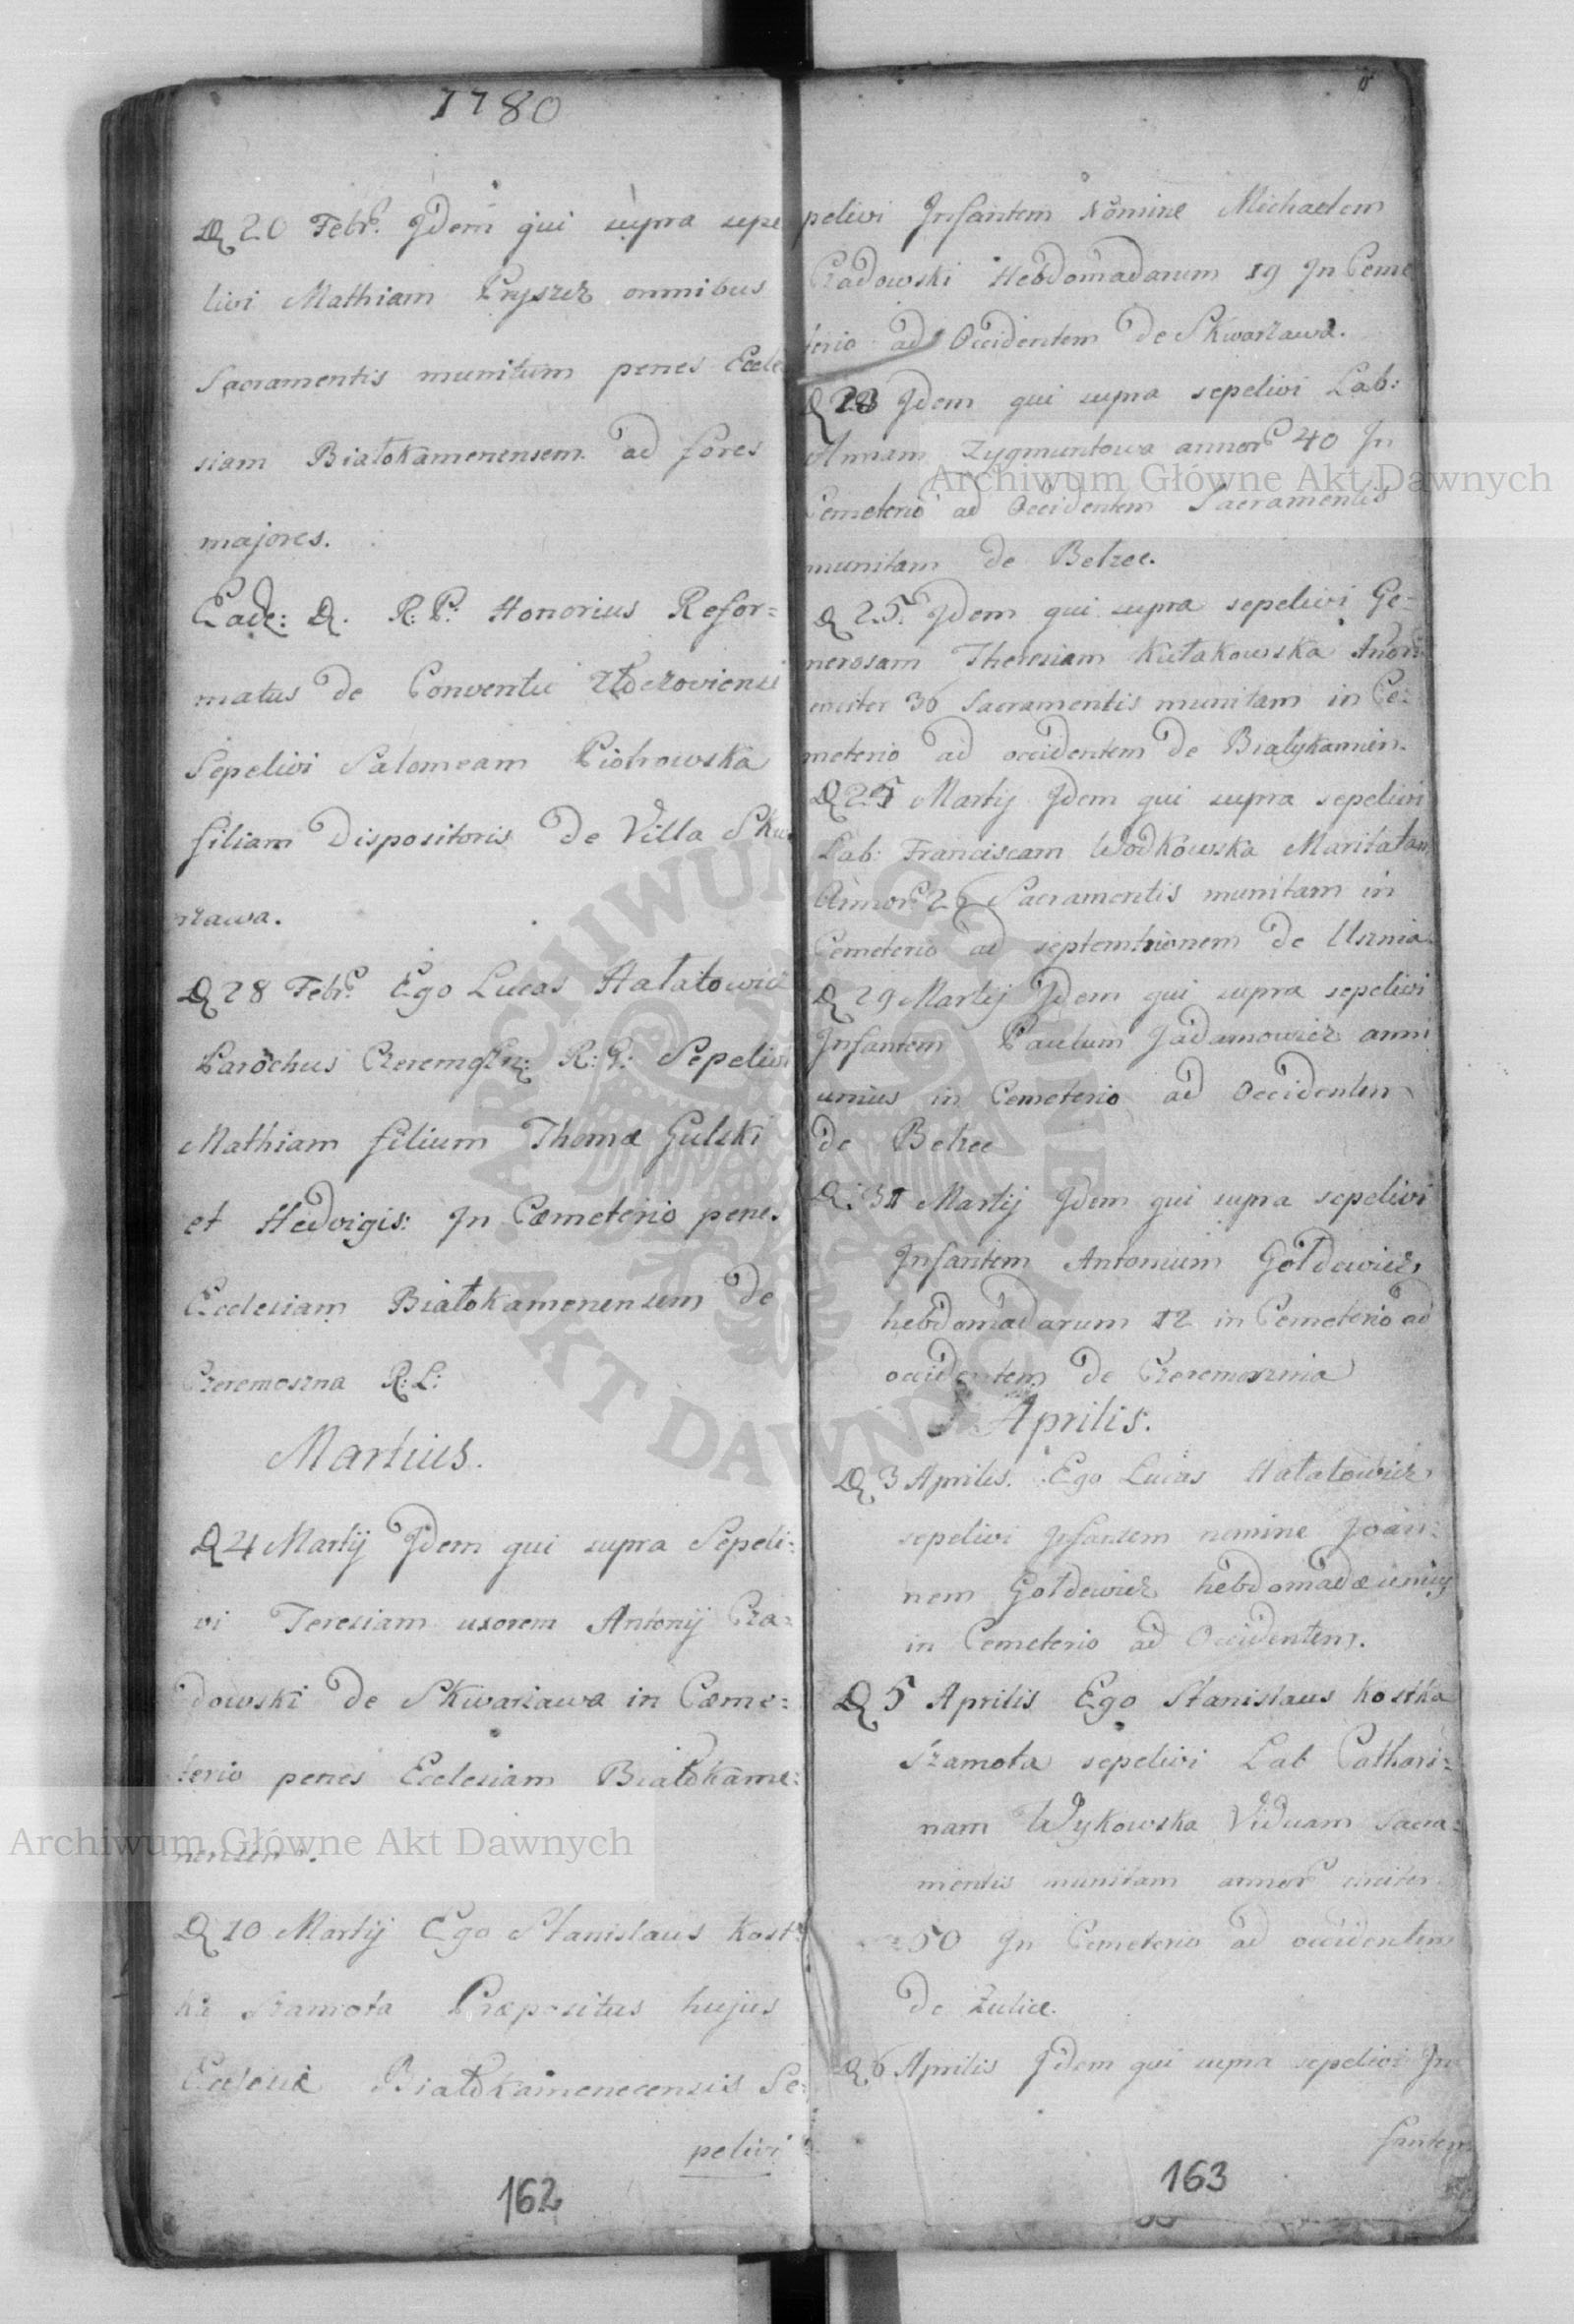 1780
D 20 Febr. Jdem qui supra sepe
livi Mathiam Pryszcz omnibus
Sacramentis munitum penes Eccle
siam Białokamenensem ad fores
majores.
Eade: D. R: P. Honorius Refor=
matus de Conventu Złoczoviensi
Sepelivi Salomeam Piotrowska
filiam Dispositoris de Villa Skwa
rzawa.
D 28 Febr. Ego Lucas Hałatowicz
Parochus Czeremosn: R: G: Sepelivi
Mathiam filium Thomæ Gulski
et Hedvigis: Jn Cæmeterio penes
Ecclesiam Białokamenensem de
Czeremoszna R: L:
Martius.
D 4 Martij Jdem qui supra Sepeli=
vi Teresiam uxorem Antonij Cza=
dowski de Skwarzawa in Cæme=
terio penes Ecclesiam Białokame=
nensem.
D 10 Martij Ego Stanislaus Kost
ka Szamota Præpositus hujus
Ecclesiæ Białokamenecensis Se=
pelivi
162
pelivi Jnfantem Nomine Michaelem
Czadowski Hebdomadarum 19 Jn Ceme
terio ad Occidentem de Skwarzawa.
D 23 Jdem qui supra sepelivi Lab:
Annam Zygmuntowa annor 40 Jn
Cemeterio ad Occidentem Sacramentis
munitam de Bełzec.
D 25. Jdem qui supra sepelivi Ge=
nerosam Theresiam Kułakowska Anor
circiter 36 Sacramentis munitam in Ce=
meterio ad occidentem de Bialykamin.
D 25 Martij Jdem qui supra sepelivi
Lab: Franciscam Wodkowska Maritatam
Annor 26 Sacramentis munitam in
Cemeterio ad septemtrionem de Usznia
D 29 Martij Jdem qui supra sepelivi
Jnfantem Paulum Jadamowicz anni
unius in Cemeterio ad Occidentem
de Bełzec
D: 31 Martij Jdem qui supra sepelivi
Jnfantem Antonium Gołdewicz
hebdomadarum 12 in Cemeterio ad
occidentem de Czeremosznia
Aprilis.
D 3 Aprilis. Ego Lucas Hałatowicz
sepelivi Jnfantem nomine Joan=
nem Gołdewicz hebdomadæ unius
in Cemeterio ad Occidentem.
D 5 Aprilis Ego Stanislaus Kostka
Szamota sepelivi Lab Cathari=
nam Wykowska Viduam Sacra=
mentis munitam annor circiter
50 Jn Cemeterio ad occidentem
de Zulice.
D 6 Aprilis Jdem qui supra sepelivi Jn
fantem
163
Archiwum Główne Akt Dawnych
Archiwum Główne Akt Dawnych
ARCHIWUM GŁÓWNE AKT DAWNYCH